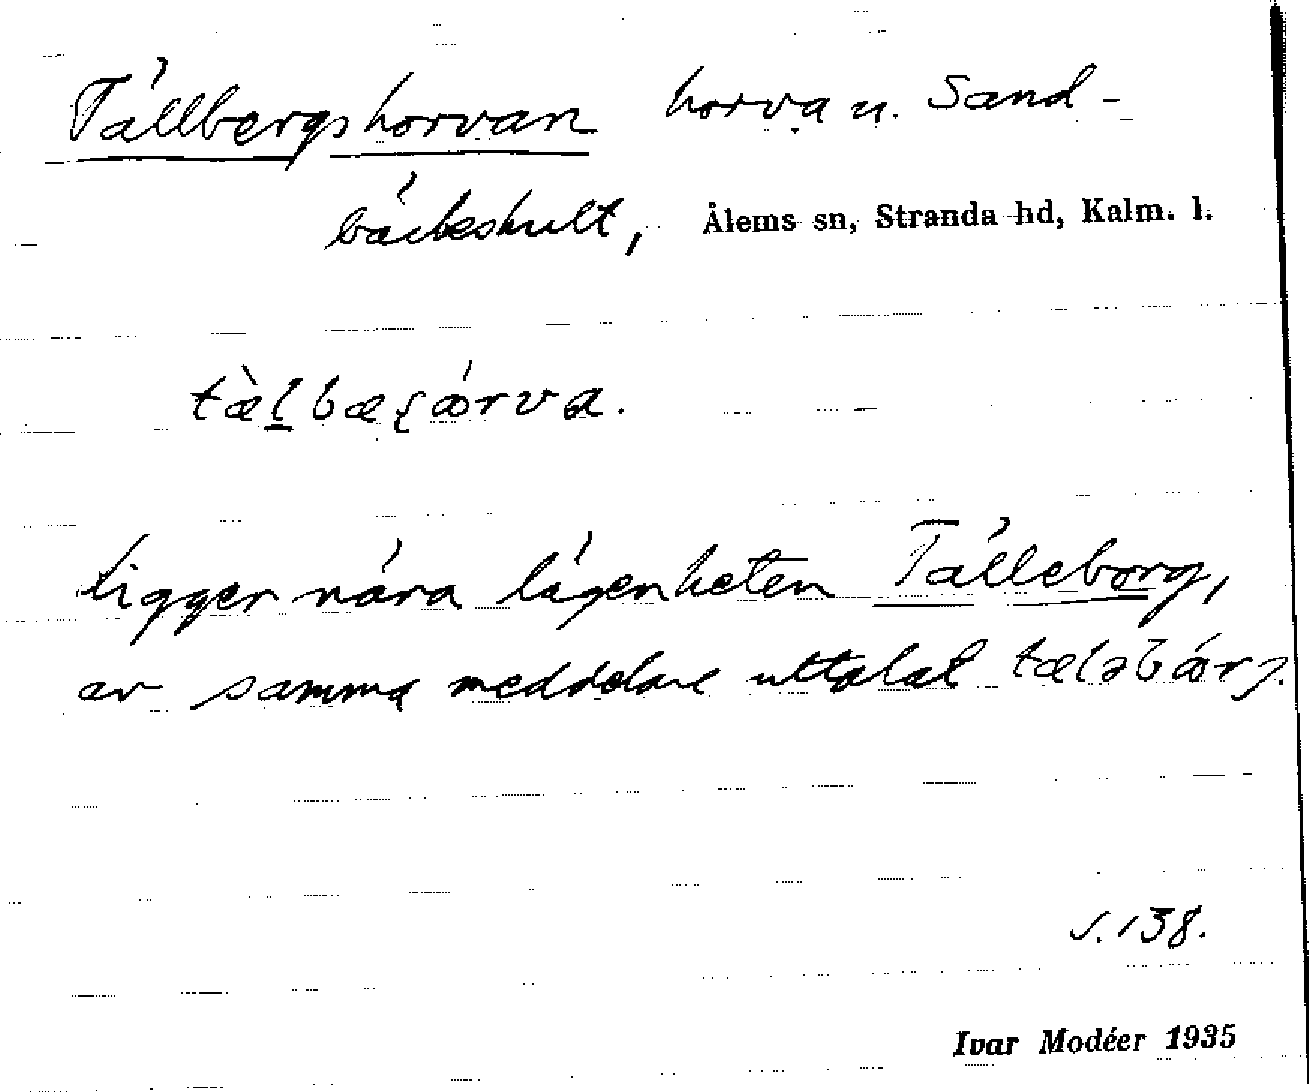 Tällbergshorvan horva u. Sand-
bäckshult, Ålems sn, Stranda hd, Kalm. l.
tæ̀lbæʃǿrva.
Ligger nära lägenheten Tälleborg,
av samma meddelare uttalat tæləbǿrj.
s. 138.
Ivar Modéer 1935